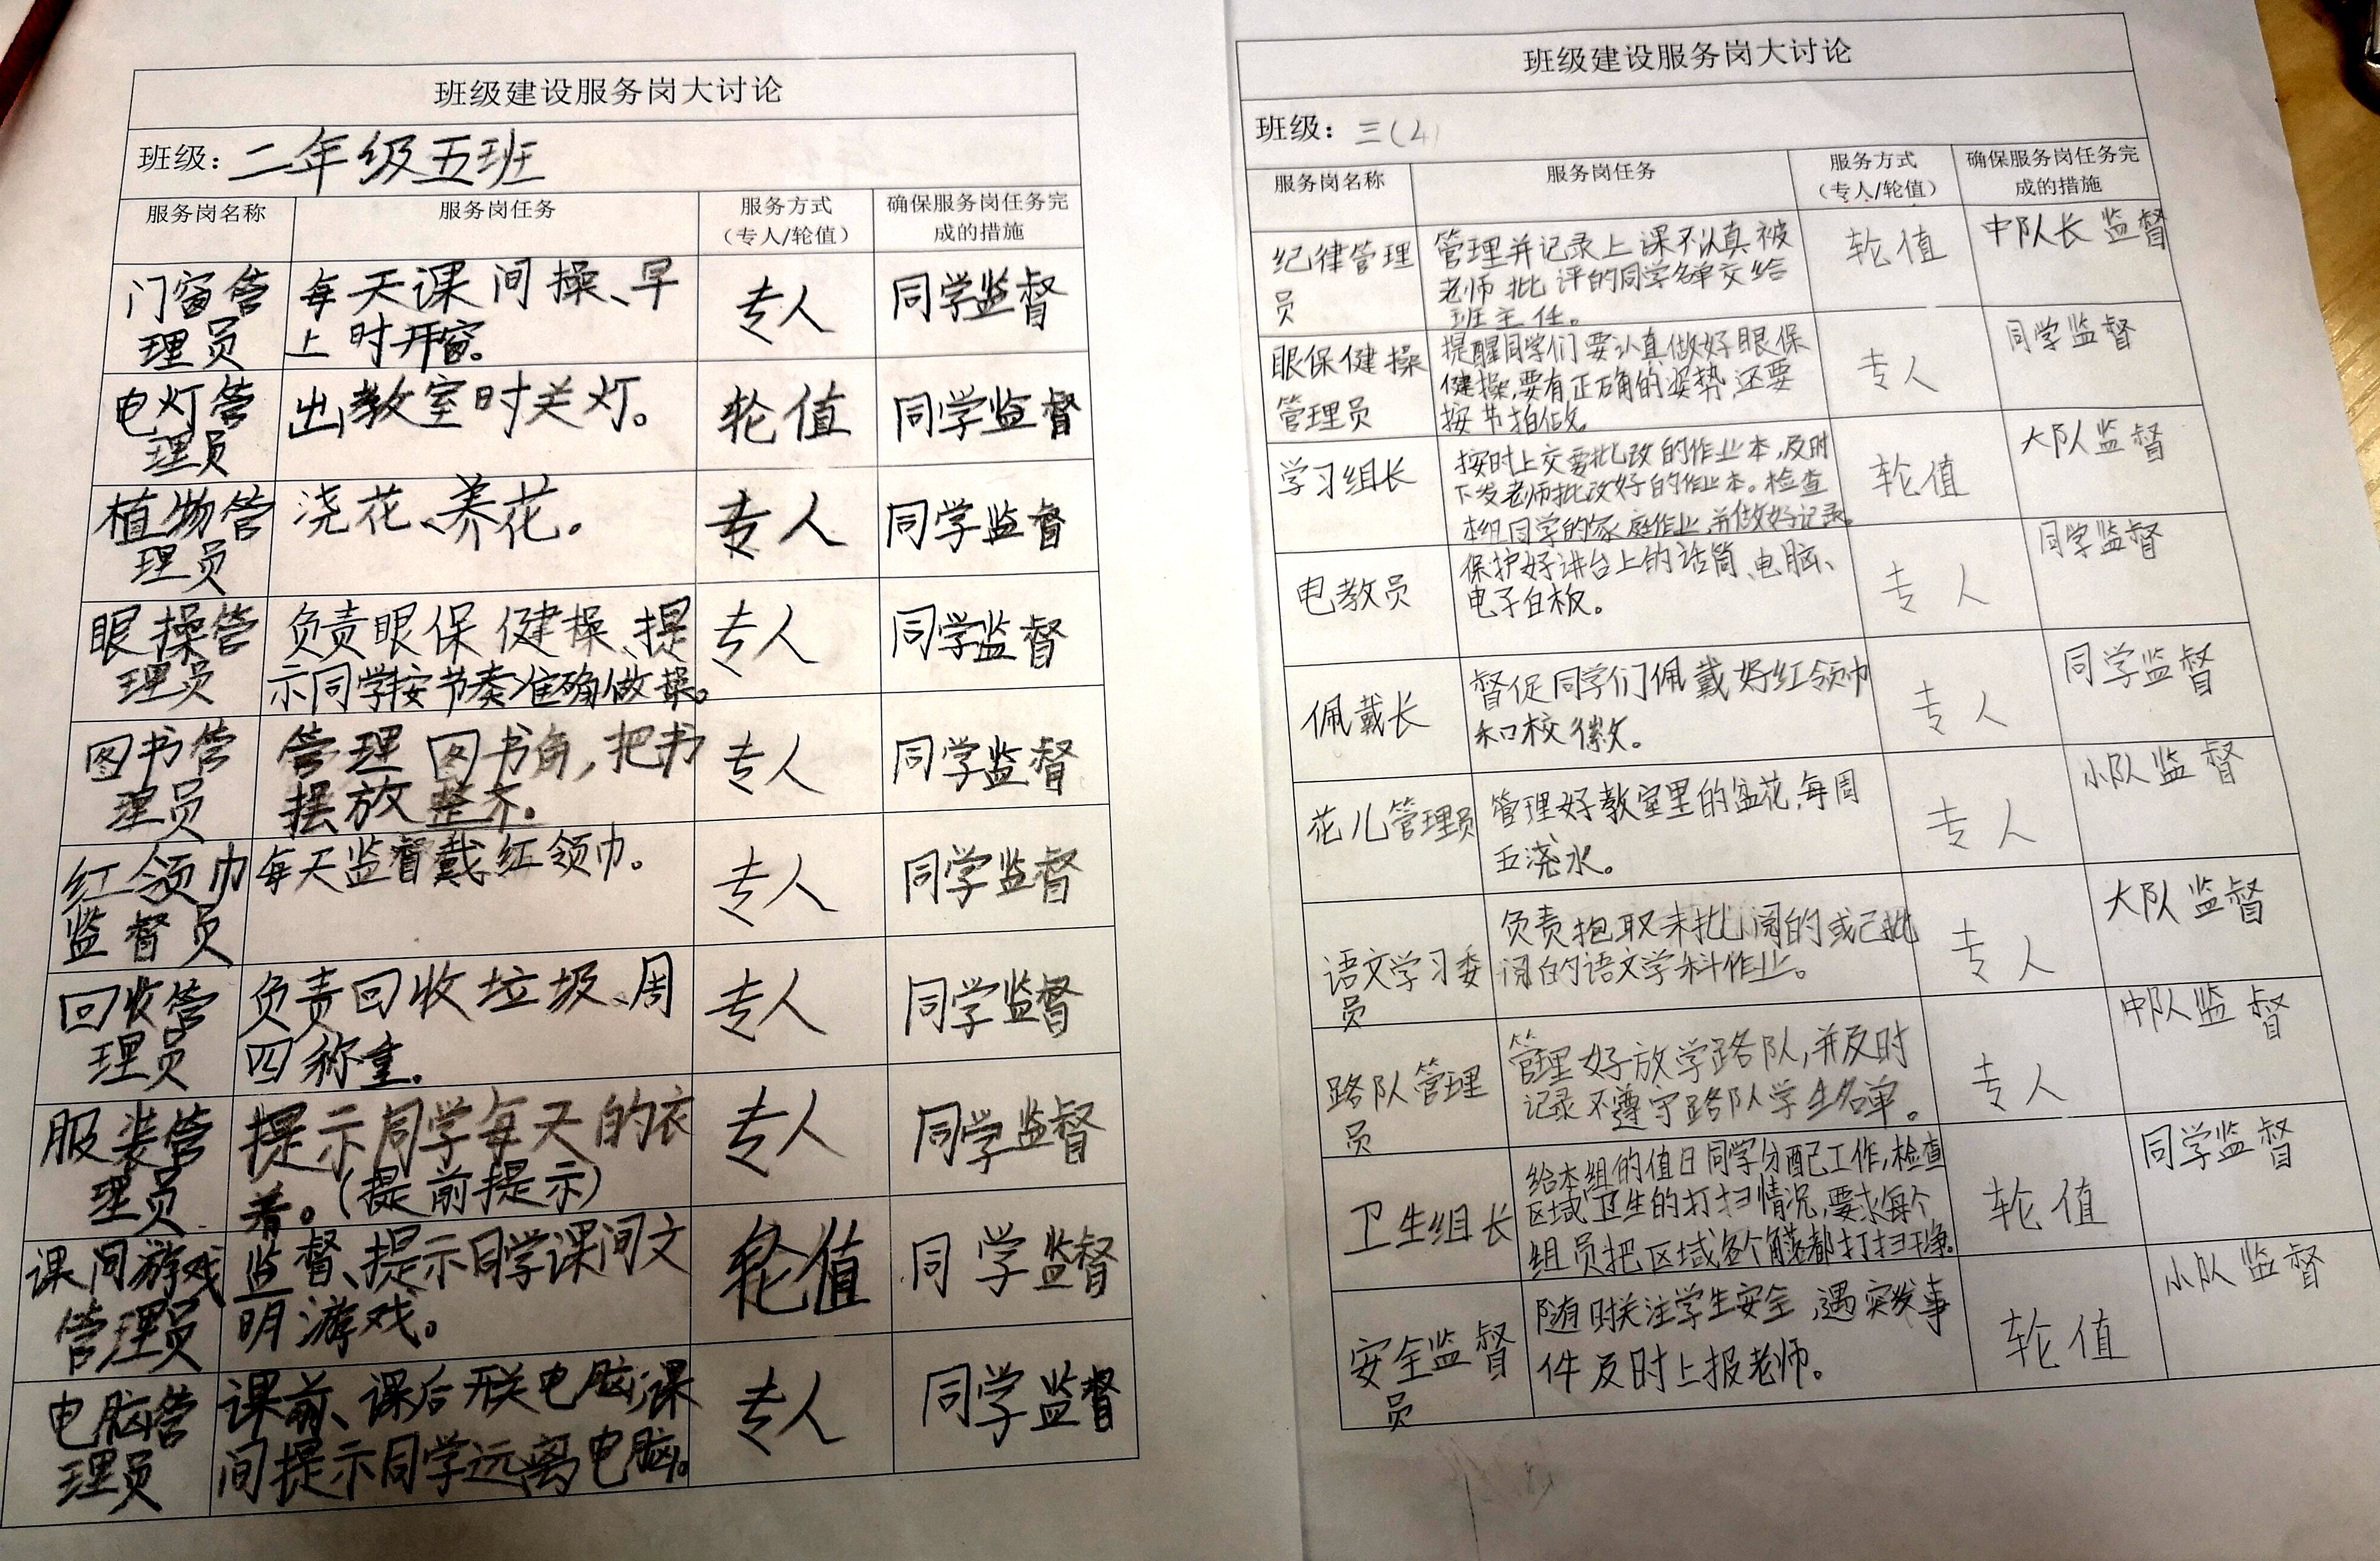 班级建设服务岗大讨论
班级：二年级五班
服务岗名称
服务岗任务
服务方式
（专人/轮值）
确保服务岗任务完
成的措施
门窗管
理员
每天课间操、早
上时开窗。
专人
同学监督
电灯管
理员
出教室时关灯。
轮值
同学监督
植物管
理员
浇花、养花。
专人
同学监督
眼操管
理员
负责眼保健操、提
示同学按节奏准确做操。
专人
同学监督
图书管
理员
管理图书角，把书
摆放整齐。
专人
同学监督
红领巾
监督员
每天监督戴红领巾。
专人
同学监督
回收管
理员
负责回收垃圾、周
四称重。
专人
同学监督
服装管
理员
提示同学每天的衣
着。（提前提示）
专人
同学监督
课间游戏
管理员
监督、提示同学课间文
明游戏。
轮值
同学监督
电脑管
理员
课前、课后开关电脑，课
间提示同学远离电脑。
专人
同学监督
班级建设服务岗大讨论
班级：三（4）
服务岗名称
服务岗任务
服务方式
（专人/轮值）
确保服务岗任务完
成的措施
纪律管理
员
管理并记录上课不认真被
老师批评的同学名单交给
班主任。
轮值
中队长监督
眼保健操
管理员
提醒同学们要认真做好眼保
健操，要有正确的姿势，还要
按节拍做。
专人
同学监督
学习组长
按时上交要批改的作业本，及时
下发老师批改好的作业本。检查
本组同学的家庭作业，并做好记录。
轮值
大队监督
电教员
保护好讲台上的话筒、电脑、
电子白板。
专人
同学监督
佩戴长
督促同学们佩戴好红领巾
和校徽。
专人
同学监督
花儿管理员
管理好教室里的盆花，每周
五浇水。
专人
小队监督
语文学习委
员
负责抱取未批阅的或已批
阅的语文学科作业。
专人
大队监督
路队管理
员
管理好放学路队，并及时
记录不遵守路队学生名单。
专人
中队监督
卫生组长
给本组的值日同学分配工作，检查
区域卫生的打扫情况，要求每个
组员把区域各个角落都打扫干净。
轮值
同学监督
安全监督
员
随时关注学生安全，遇突发事
件及时上报老师。
轮值
小队监督